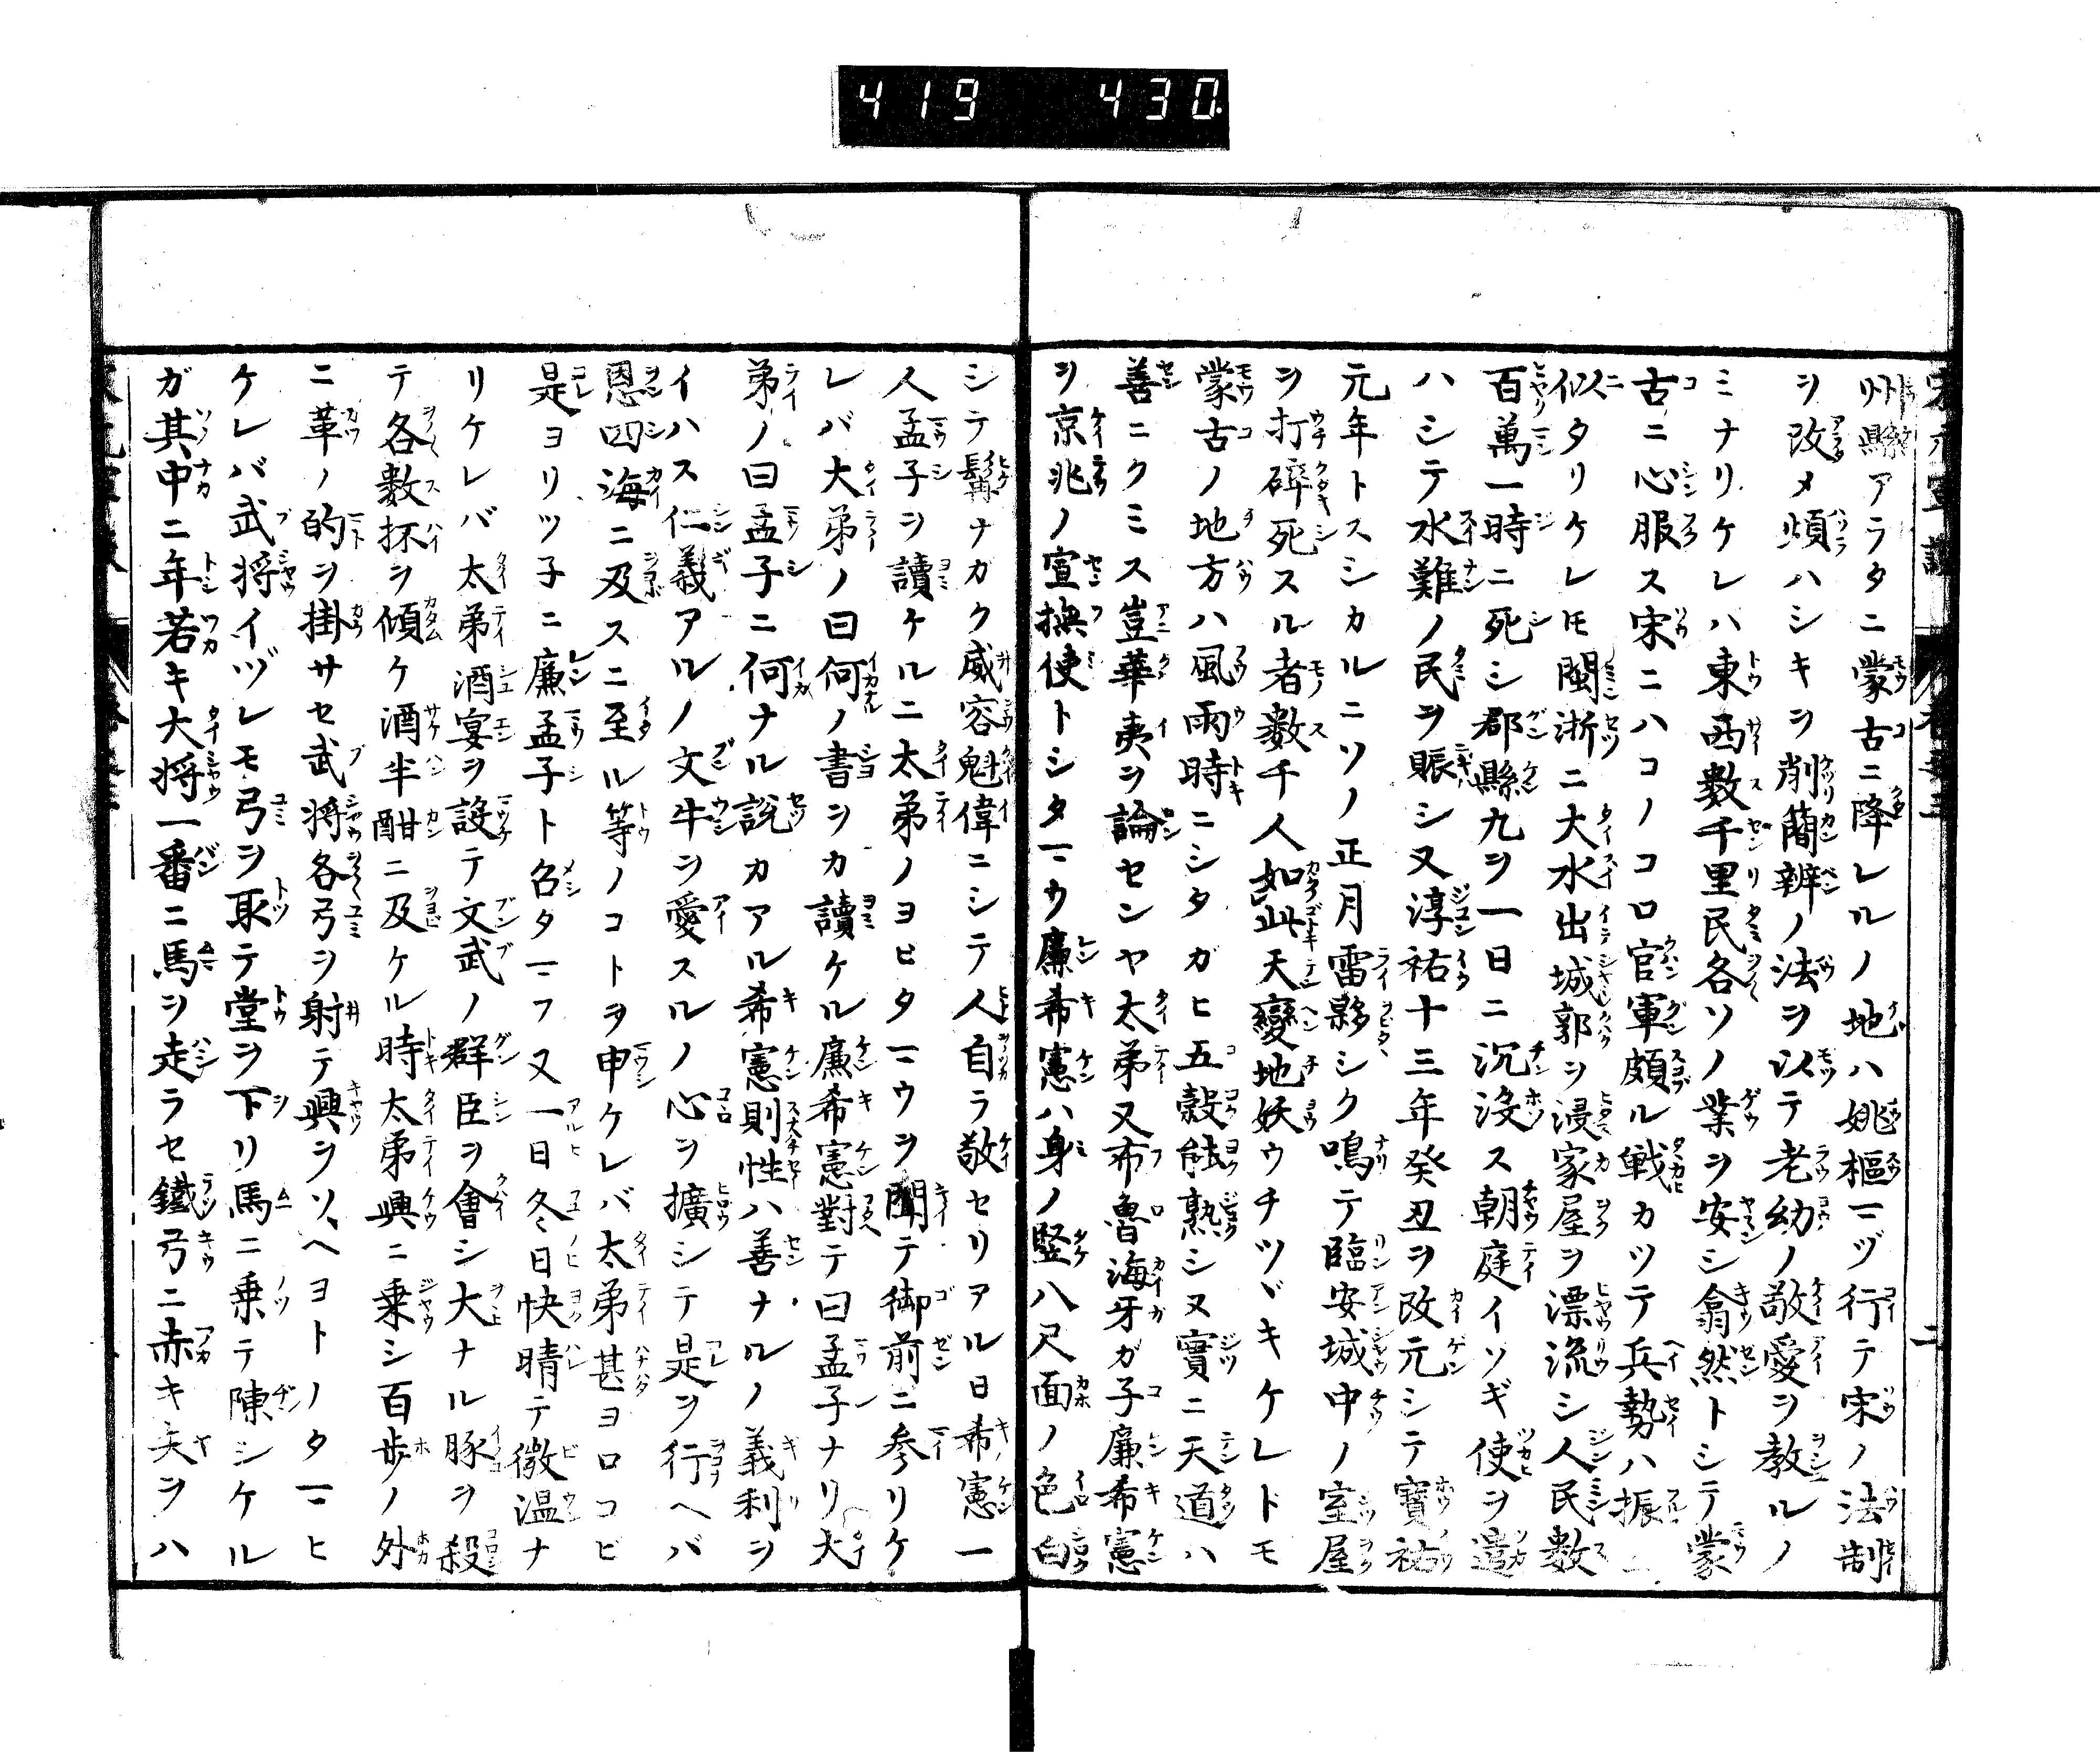 419 430
州縣アラタニ蒙古ニ降レルノ地ハ姚樞マヅ行テ宋ノ法制
ヲ改メ煩ハシキヲ削簡辨ノ法ヲ以テ老幼ノ敬愛ヲ教ルノ
ミナリケレハ東西數千里民各ソノ業ヲ安シ翕然トシテ蒙
古ニ心服ス宋ニハコノコロ官軍頗ル戰カツテ兵勢ハ振ニ
似タリケレモ閩浙ニ大水出城郭ヲ浸家屋ヲ漂流シ人民數
百萬一時ニ死シ郡縣九ヲ一日ニ沉没ス朝庭イソギ使ヲ遣
ハシテ水難ノ民ヲ賑シ又淳祐十三年癸丑ヲ改元シテ寶祐
元年トスシカルニソノ正月雷夥シク鳴テ臨安城中ノ室屋
ヲ打碎死スル者數千人如此天變地妖ウチツヾキケレドモ
蒙古ノ地方ハ風雨時ニシタガヒ五穀能熟シ又實ニ天道ハ
善ニクミス豈華夷ヲ論センヤ太弟又布魯海牙カ子廉希憲
ヲ京兆ノ宣撫使トシタマウ廉希憲ハ身ノ竪八尺面ノ色白
シテ髯ナガク威容魁偉ニシテ人自ラ敬セリアル日希憲一
人孟子ヲ讀ケルニ太弟ノヨビタマウヲ聞テ御前ニ参リケ
レバ大弟ノ曰何ノ書ヲカ讀ケル廉希憲對テ曰孟子ナリ大
弟ノ曰孟子ニ何ナル説カアル希憲則性ハ善ナルノ義利ヲ
イハス仁義アルノ文牛ヲ愛スルノ心ヲ擴シテ是ヲ行ヘバ
恩四海ニ及スニ至ル等ノコトヲ申ケレバ太弟甚ヨロコビ
是ヨリツ子ニ廉孟子ト名タマフ又一日冬日快晴テ微温ナ
リケレバ太弟酒宴ヲ設テ文武ノ群臣ヲ會シ大ナル豚ヲ殺
テ各數抔ヲ傾ケ酒半酣ニ及ケル時太弟興ニ乗シ百歩ノ外
ニ革ノ的ヲ掛サセ武将各弓ヲ射テ興ヲソヘヨトノタマヒ
ケレバ武将イヅレモ弓ヲ取テ堂ヲ下リ馬ニ乗テ陳シケル
ガ其中ニ年若キ大将一番ニ馬ヲ走ラセ鐵弓ニ赤キ矢ヲハ